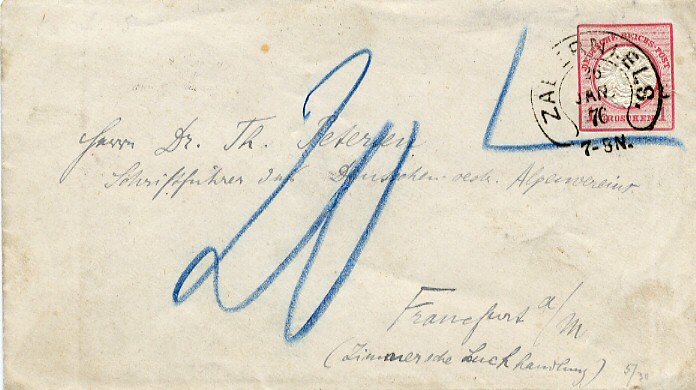 DEUTSCHE REICHS-POST
GROSCHEN 1
ZABERN / ELS.
26
JAN.
76
7-8N.
20
Herrn Dr. Th. Petersen
Schriftführer des Deutschen oestr. Alpenvereins
Francfurt a/M
(Zimmersche Buchhandlung)
5/30